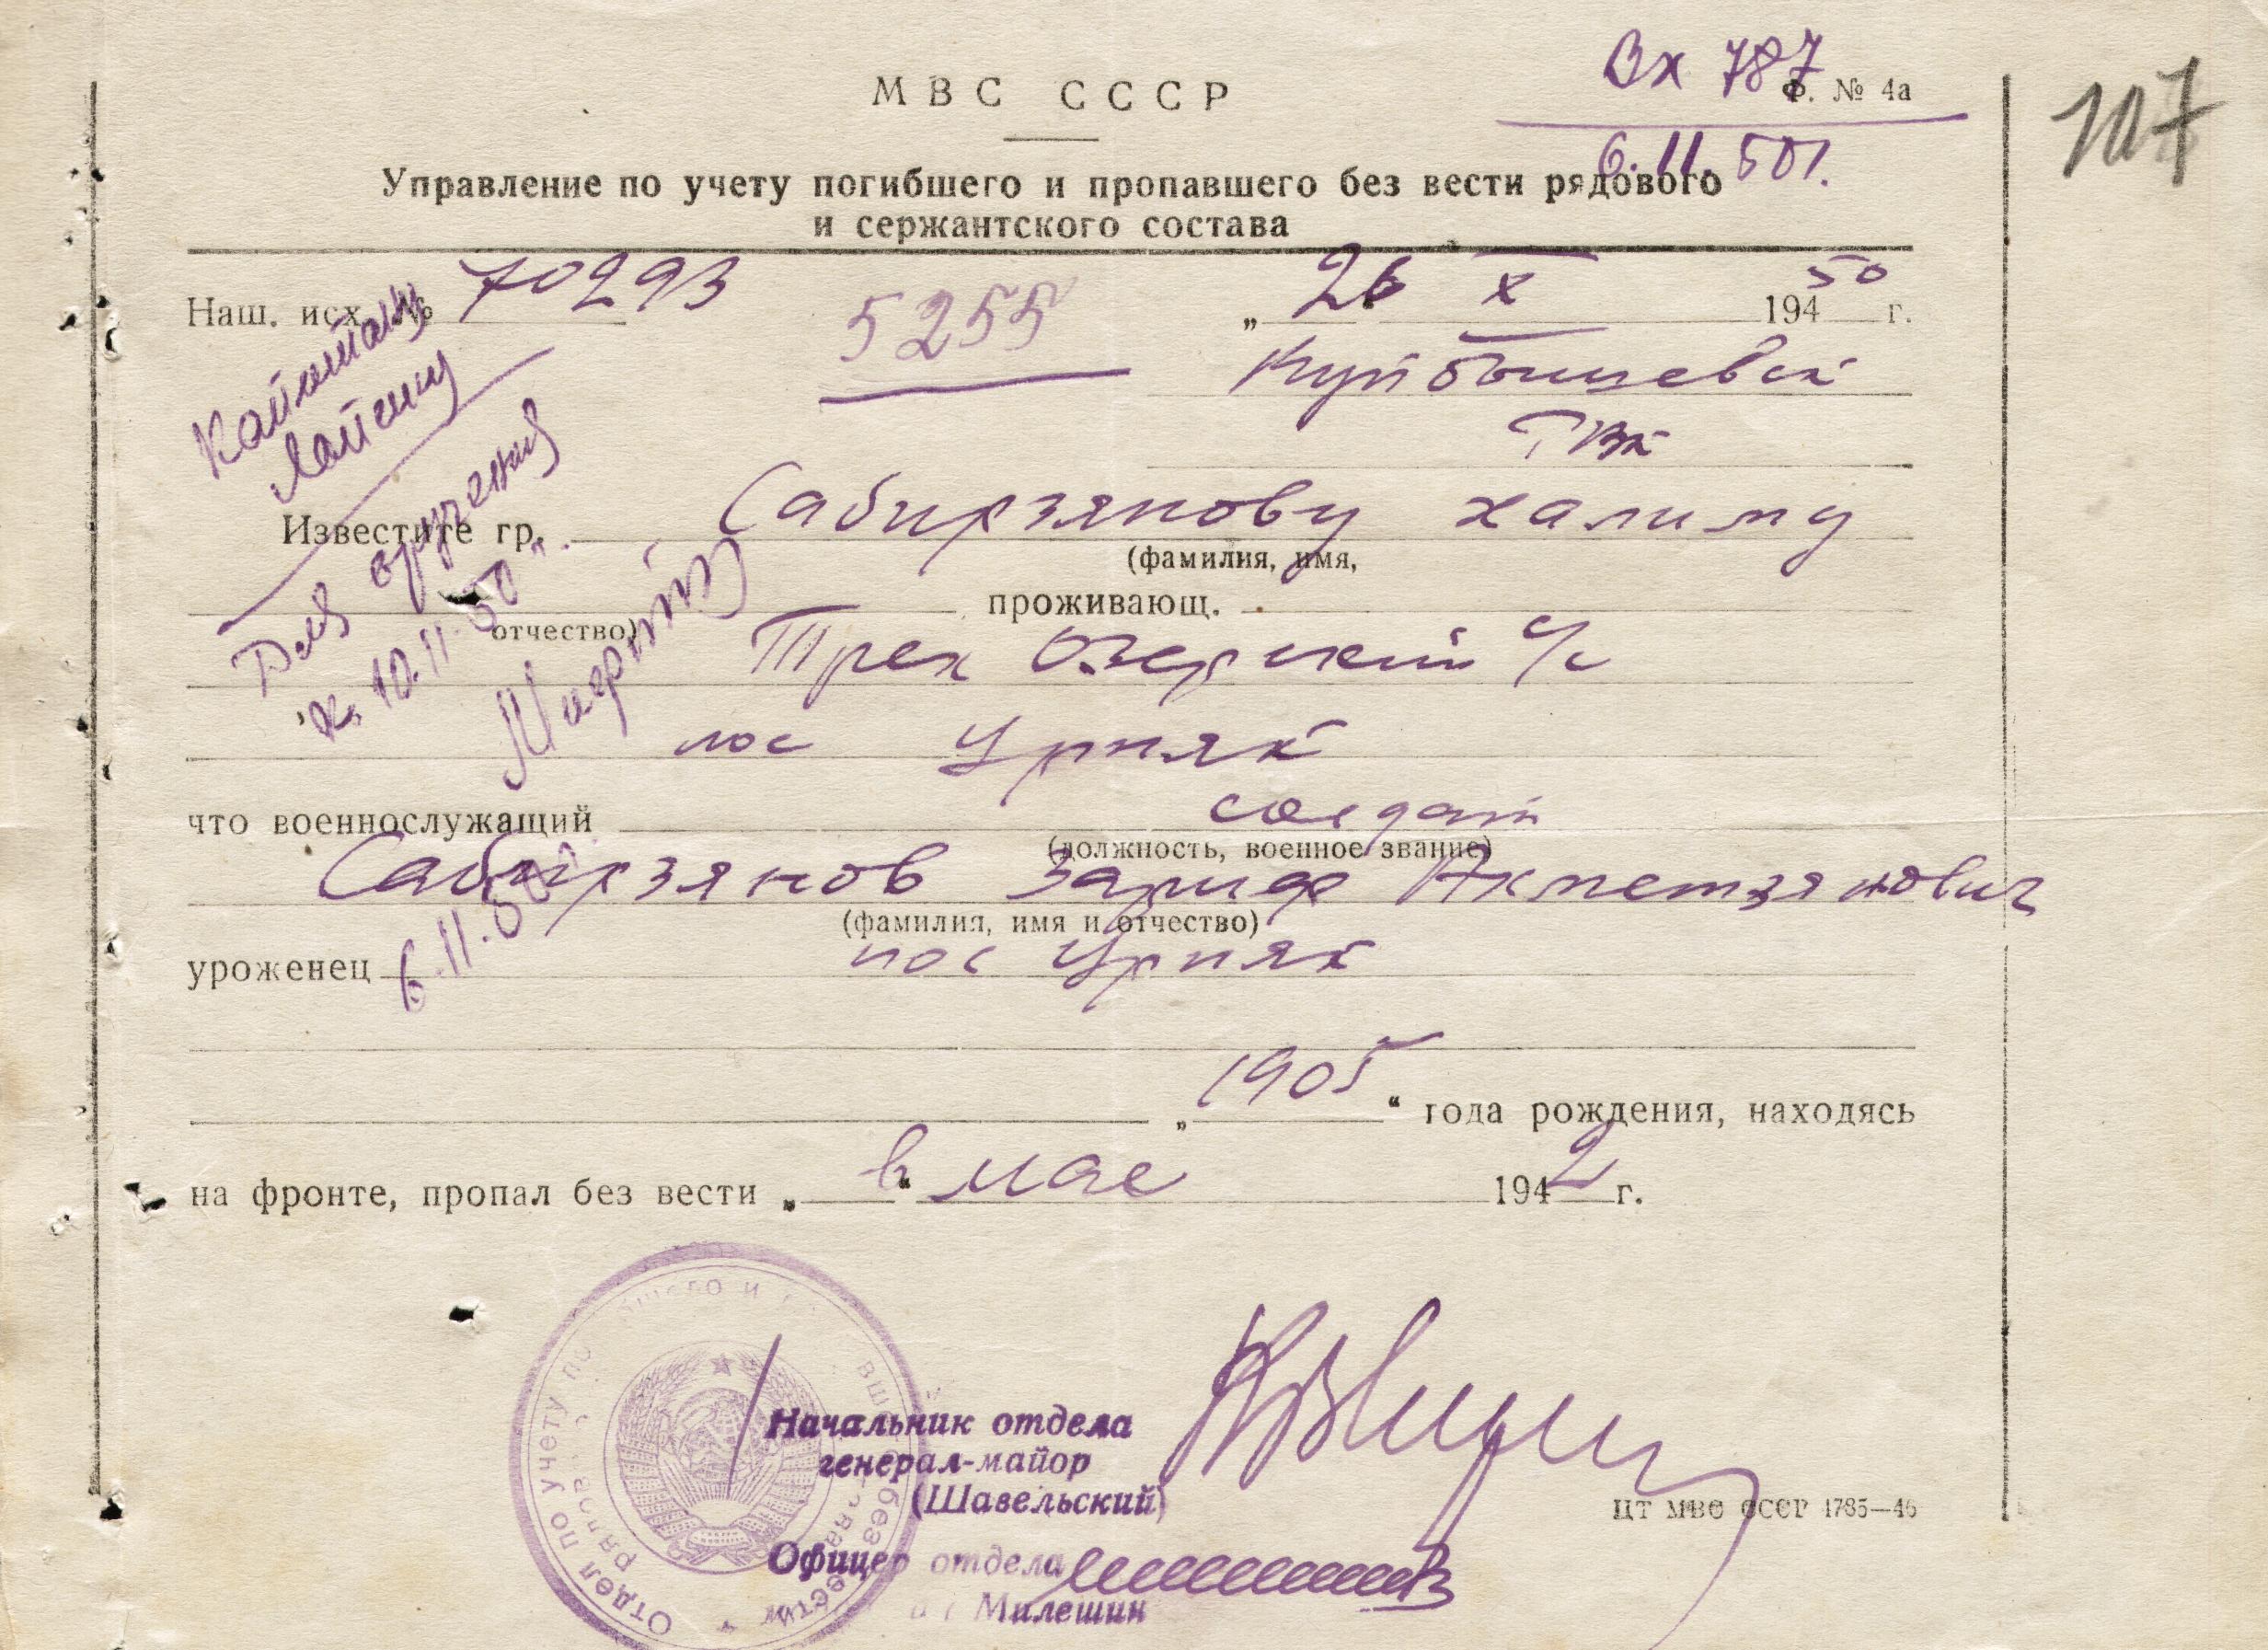 Вх 787
6.11.50г.
107
МВС СССР
Ф. № 4а
Управление по учету погибшего и пропавшего без вести рядового
и сержантского состава
Наш. исх. № 70293
5255
„26 X 194 50 г.
Куйбышевск
ГВК
Капитану
Лапшину
Для вручения
к 10.11.50г.
6.11.50г.
Известите гр. Сабирзянову Халиму
(фамилия, имя,
проживающ.
отчество)
Трех Озерский с/с
пос Урняк
что военнослужащий солдат
(должность, военное звание)
Сабирзянов Зариф Ахметзянович
(фамилия, имя и отчество)
уроженец пос Урняк
„1905“ года рождения, находясь
на фронте, пропал без вести „в“ мае 1942 г.
Начальник отдела
генерал-майор
(Шавельский)
Офицер отдела
Милешин
ЦТ МВС СССР 1785—46
Отдел по учету